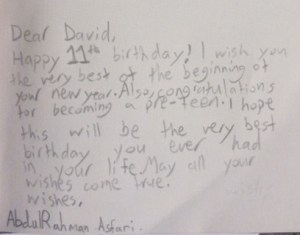 Dear David,
Happy 11th birthday! I wish you
the very best at the beginning of
your new year. Also, congratulations
for becoming a pre-teen. I hope
this will be the very best
birthday you ever had
in your life. May all your
wishes come true.
wishes,
AbdulRahman Asfari.